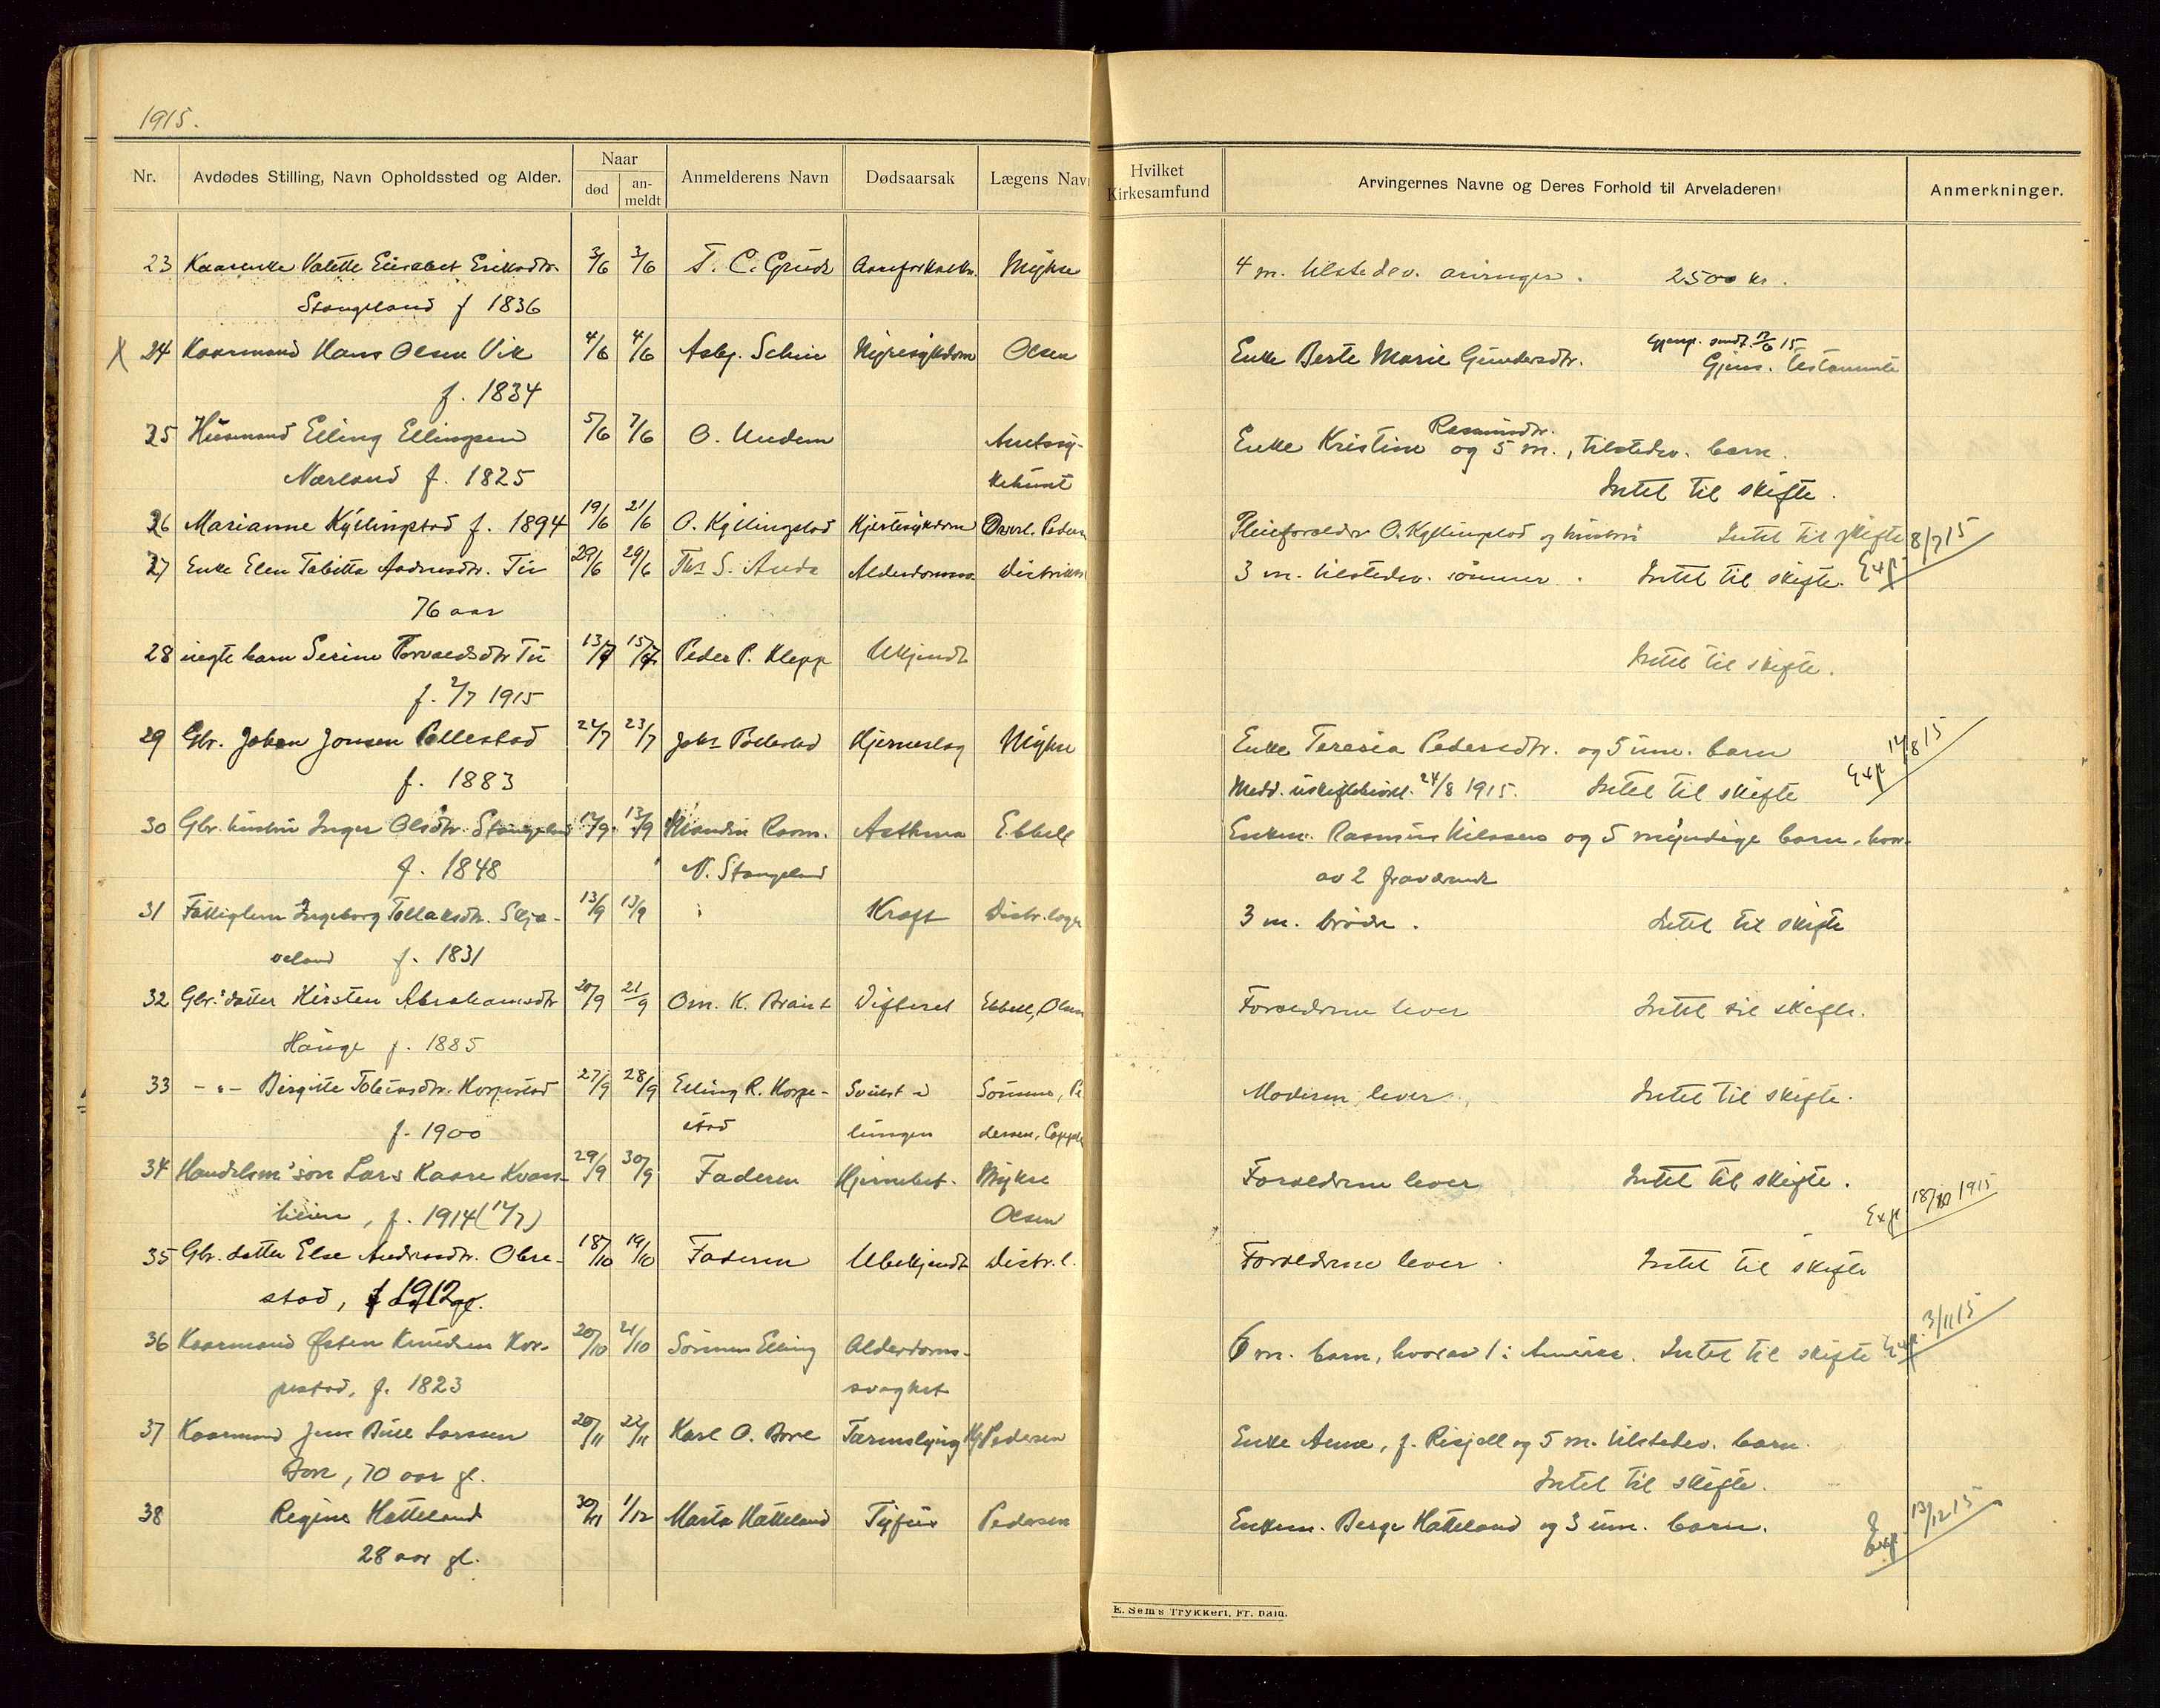 1915.
Nr. Avdødes Stilling, Navn Opholdssted og Alder. Naar død an-meldt Anmelderens Navn Dødsaarsak Lægens Navn Hvilket Kirkesamfund Arvingernes Navne og Deres Forhold til Arveladeren Anmerkninger.
23 Kaarenke Valette Elisabet Eriksdtr. 3/6 3/6 T. C. Grude Aareforkalkn. Mykse 4 m. tilstedev. arvinger. 2500 kr.
Stangeland f 1836
X 24 Kaarmand Hans Olsen Vik 4/6 4/6 Asbj. Nyresykdom Olsen Enke Berte Marie Gundersdtr. Gjenp. sendt 12/6 15
f. 1834 Gjens. testamente
25 Husmand Elling Ellingsen 5/6 7/6 O. Undem Amtssy- Enke Kristine Rasmusdtr. og 5 m., tilstedev. barn.
Nærland f. 1825 kehuset Intet til skifte.
26 Marianne Kyllingstad f. 1894 19/6 21/6 O. Kyllingstad Hjertesykdom Overl. Peders Pleieforældre O. Kyllingstad og hustru Intet til skifte
27 Enke Elen Tabitta Aadnesdtr. Tu 29/6 29/6 Ths S. Anda Alderdomss. Distriktsl 3 m. tilstedev. sønner. Intet til skifte. Exp 8/7 15
76 aar
28 uegte barn Serine Torvaldsdtr Tu 13/7 15/7 Peder P. Klepp Ukjendt Intet til skifte.
f. 2/7 1915
29 Gbr. Johan Jonsen Pollestad 22/7 23/7 Johs Pollestad Hjerneslag Mykse Enke Teresia Pedersdtr. og 5 um. barn
f. 1883 Medd. uskiftebevil. 24/8 1915. Intet til skifte Exp 14/8 15
30 Gbr. hustru Inger Olsdtr. Stangeland 12/9 13/9 Manden Rasm. Asthma Ebbell Enkem. Rasmus Nilssen og 5 myndige barn, hvor-
f. 1848 N. Stangeland av 2 fraværende
31 Fattiglem Ingeborg Tollaksdtr. Skjæ- 13/9 13/9 Kræft Distr.læge 3 m. brødre. Intet til skifte
veland f. 1831
32 Gbr.'datter Kirsten Abrahamsdtr 20/9 21/9 Om. K. Braut Difterit Ebbell, Olsen Forældrene lever Intet til skifte.
Hauge f. 1885
33 -"- Birgitte Tobiasdtr. Horpestad 27/9 28/9 Elling R. Horpe- Svulst i Sømme, Pe Moderen lever. Intet til skifte.
f. 1900 stad lungen dersen, Cappel
34 Handelsm'søn Lars Kaare Kvas- 29/9 30/9 Faderen Hjernebet. Mykse Forældrene lever Intet til skifte.
heim, f. 1914 (12/7) Olsen Exp 18/10 1915
35 Gbr. datter Else Andreasdtr. Obre- 18/10 19/10 Faderen Ubekjendt Distr.l. Forældrene lever. Intet til skifte
stad, f 1912
36 Kaarmand Østen Knudsen Hor- 20/10 21/10 Sønnen Elling Alderdoms- 6 m. barn, hvorav 1 i Amerika. Intet til skifte Exp. 3/11 15
pestad, f. 1823 svaghet
37 Kaarmand Jens Bull Larssen 20/11 22/11 Karl O. Bore Tarmslyng Hj Pedersen Enke Anna, f. Risjell og 5 m. tilstedev. barn.
Bore, 70 aar gl. Intet til skifte.
38 Regine Hatteland 30/11 1/12 Marta Hatteland Tyfus Pedersen Enkem. Berge Hatteland og 3 um. barn.
28 aar gl. Exp. 13/12 15
E. Sem's Trykkeri, Fr. hald.